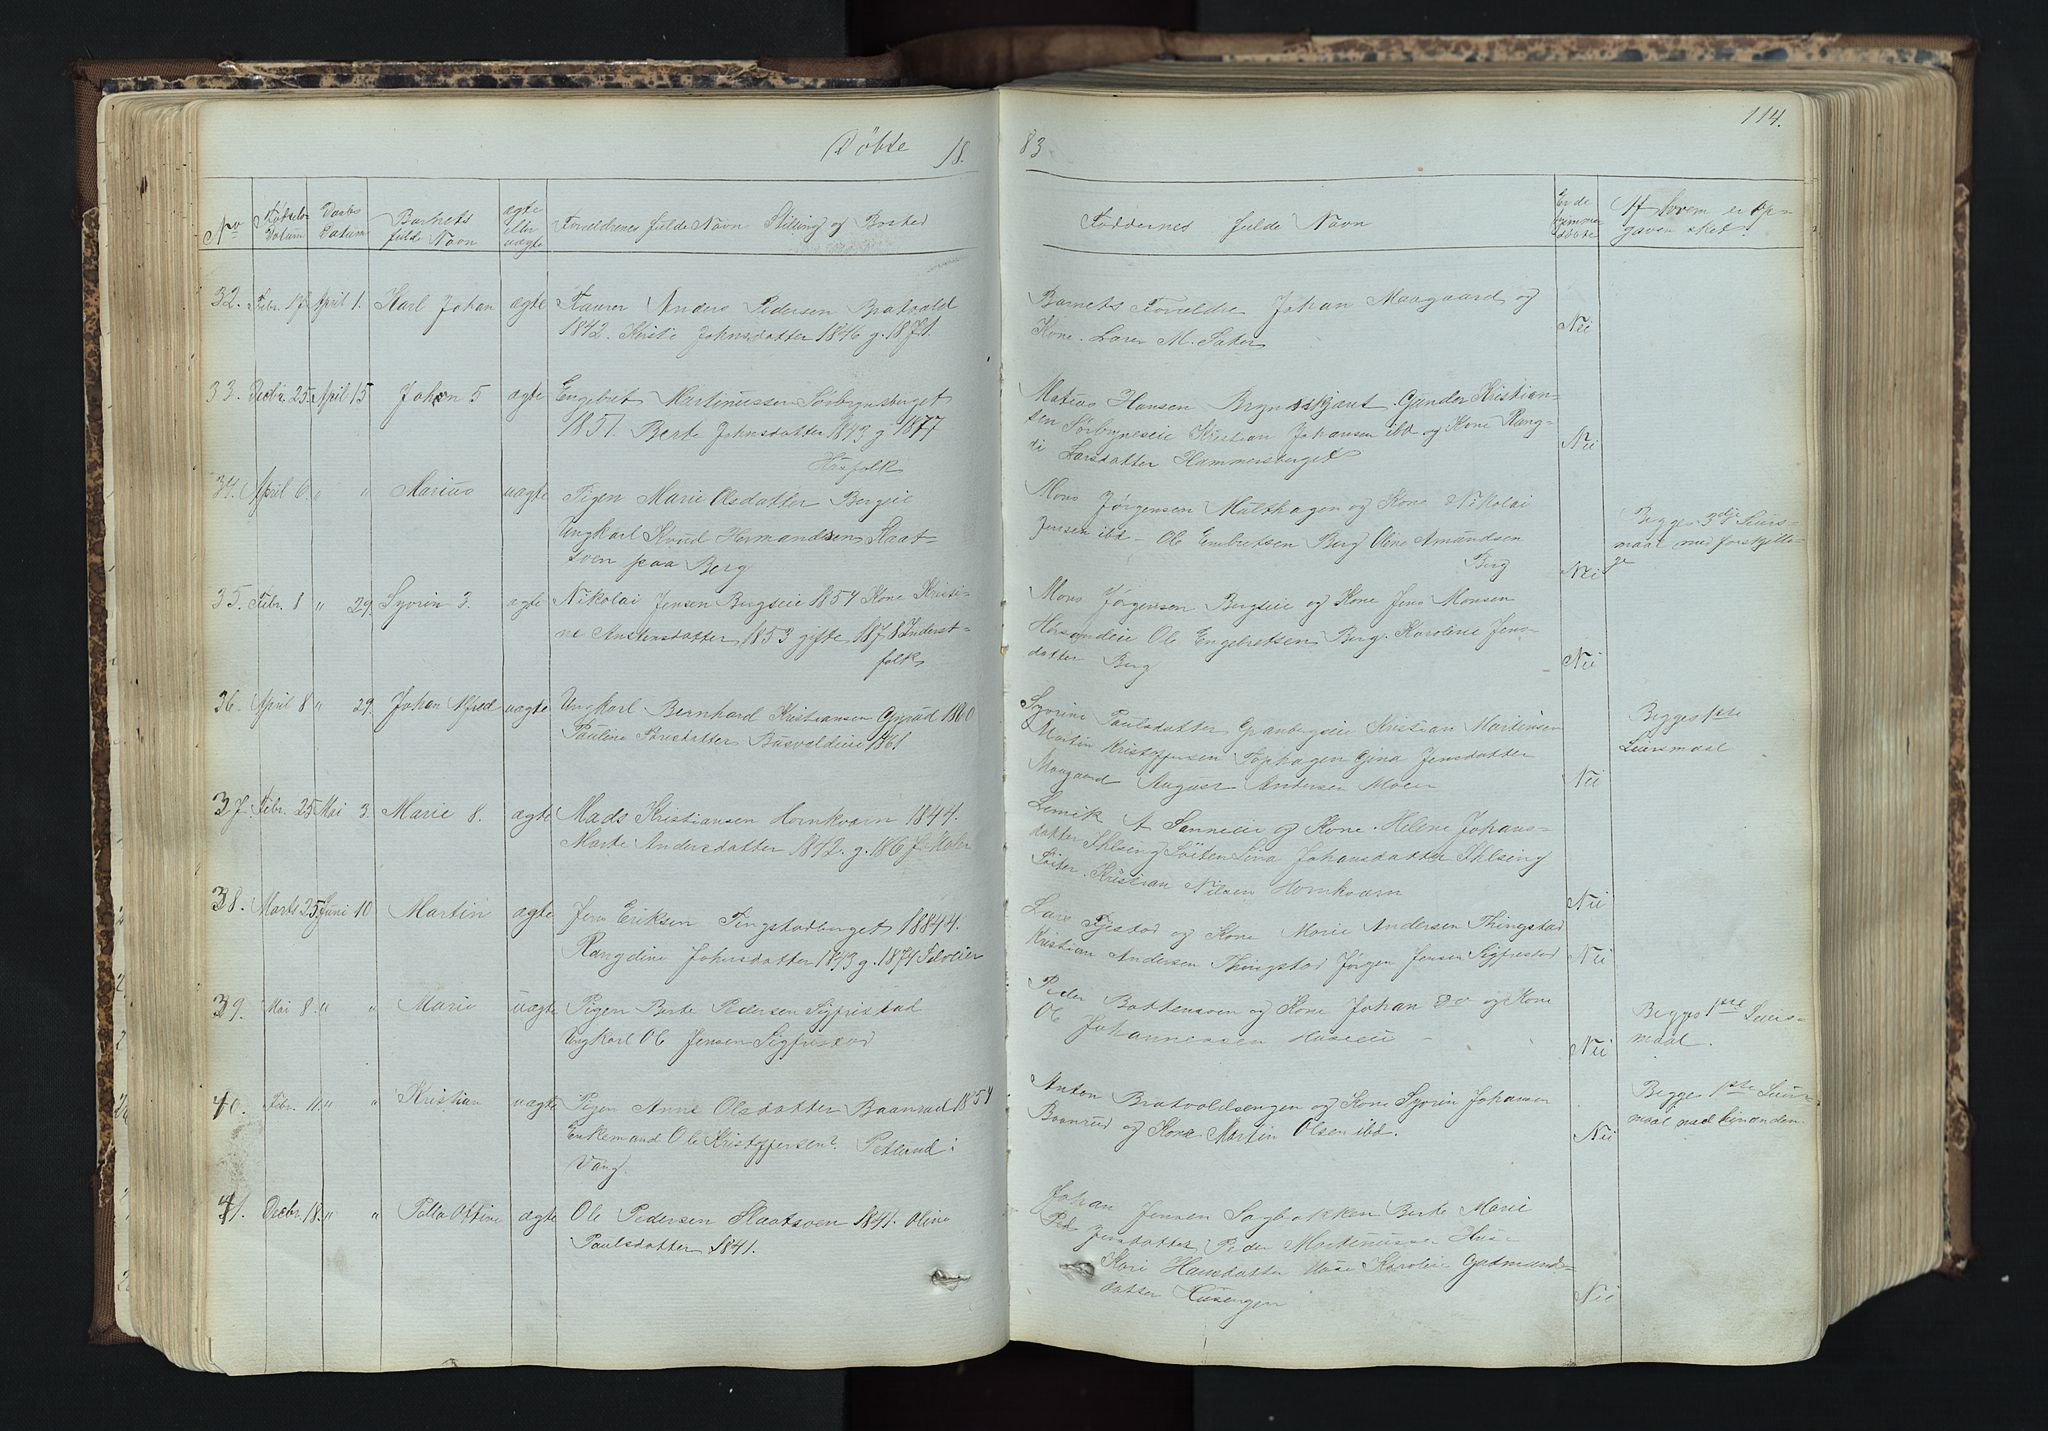 Döbte 18
83
114.
No
Fötsels Datum
Daabs Datum
Barnets fulde Navn
ægte eller uægte
Forældrenes fulde Navn Stilling og Bosted
Faddernes fulde Navn
Af hvem er op-
gaven sket?
32. Febr. 17 April 1. Karl Johan ægte
Anders Pedersen Bratvold
1842. Kersti Johnsdatter 1846 g. 1871.
Barnets Forældre Johan Maagaard og
Kone. Lars M. Sater
Nei
33. Decbr. 25. April 15 Johan 5 ægte
Engebret Martinussen Sörbrynsberget
1851. Berte Johnsdatter 1843 g 1877
Husfolk
Matias Hansen Gunder Kristian-
sen Sörbyneeie Kristian Johansen ibd og Kone Rang-
di Larsdatter Hammersberget
Nei
34. April 6. " " Marius uægte
Pigen Marie Olsdatter Bergeie
Ungkarl Knud Hermandsen Staat-
sven paa Berg
Mons Jörgensen Malthagen og Kone Nikolai
Jensen ibd - Ole Embretsen Berg Oline Amundsen
Berg
Nei
Begges 3die Leiers-
maal med forskjelli-
ge
35. Febr. 8 " 29. Syverin 3. ægte
Nikolai Jensen Bergseie 1854 Kone Kristi-
ne Austensdatter 1853 gifte 1878 Inderst-
folk
Mons Jörgensen Bergseie og Kone Jens Monsen
Ole Engebretsen Berg. Karoline Jens-
datter Berg
Nei
36. April 8 " 29. Johan Alfred uægte
Ungkarl Bernhard Kristiansen 1860
Pauline 1861
Syverine Paulsdatter Granbergeie Kristian Martinsen
Martin Kristoffersen Tophagen Gina Jensdatter
Maagaard August Andersen Moen
Nei
Begges 1ste
Leiersmaal
37 Febr. 25 Mai 3. Marie 8. ægte
Mads Kristiansen Hornkvarn 1844.
Marte Andersdatter 1842. g. 1867
og Kone. Helene Johans-
datter Lina Johansdatter
Kristian Nilsen Hornkvarn
Nei
38. Marts 25 Juni 10 Martin ægte
Jens Eriksen Tingstadberget 18844.
Rangdine Johnsdatter 1843 g. 1874
Lars Tjestad og Kone Marie Andersen Thingstad
Kristian Andersen Thingstad Jörgen Jensen Sigfrestad
Nei
39. Mai 8. " " Marie uægte
Pigen Berte Pedersen Sigfristad
Ungkarl Ole Jensen Sigfristad
Peder og Kone Johan Do og Kone
Ole Johannessen Huseeie
Nei
Begges 1ste Leiers-
maal.
40. Febr. 11. " " Kristian uægte
Pigen Anne Olsdatter Baanrud 1854
Enkemand Ole Kristoffersen? Peslund i
Vang.
Anton Bratvoldsengen og Kone Syverin Johansen
Baanrud og Kone Martin Olsen ibd.
Nei
Begges 1ste Leiers-
maal med hinanden
41. Decbr. 18. " " Palla Ottine ægte
Ole Pedersen Staatsven 1841. Oline
Paulsdatter 1841.
Johan Jensen Sagbakken Berte Marie
Jensdatter Peder Martinussen Huse
Kari Hansdatter Huse Karoline Gudmunds-
datter Husengen
Nei